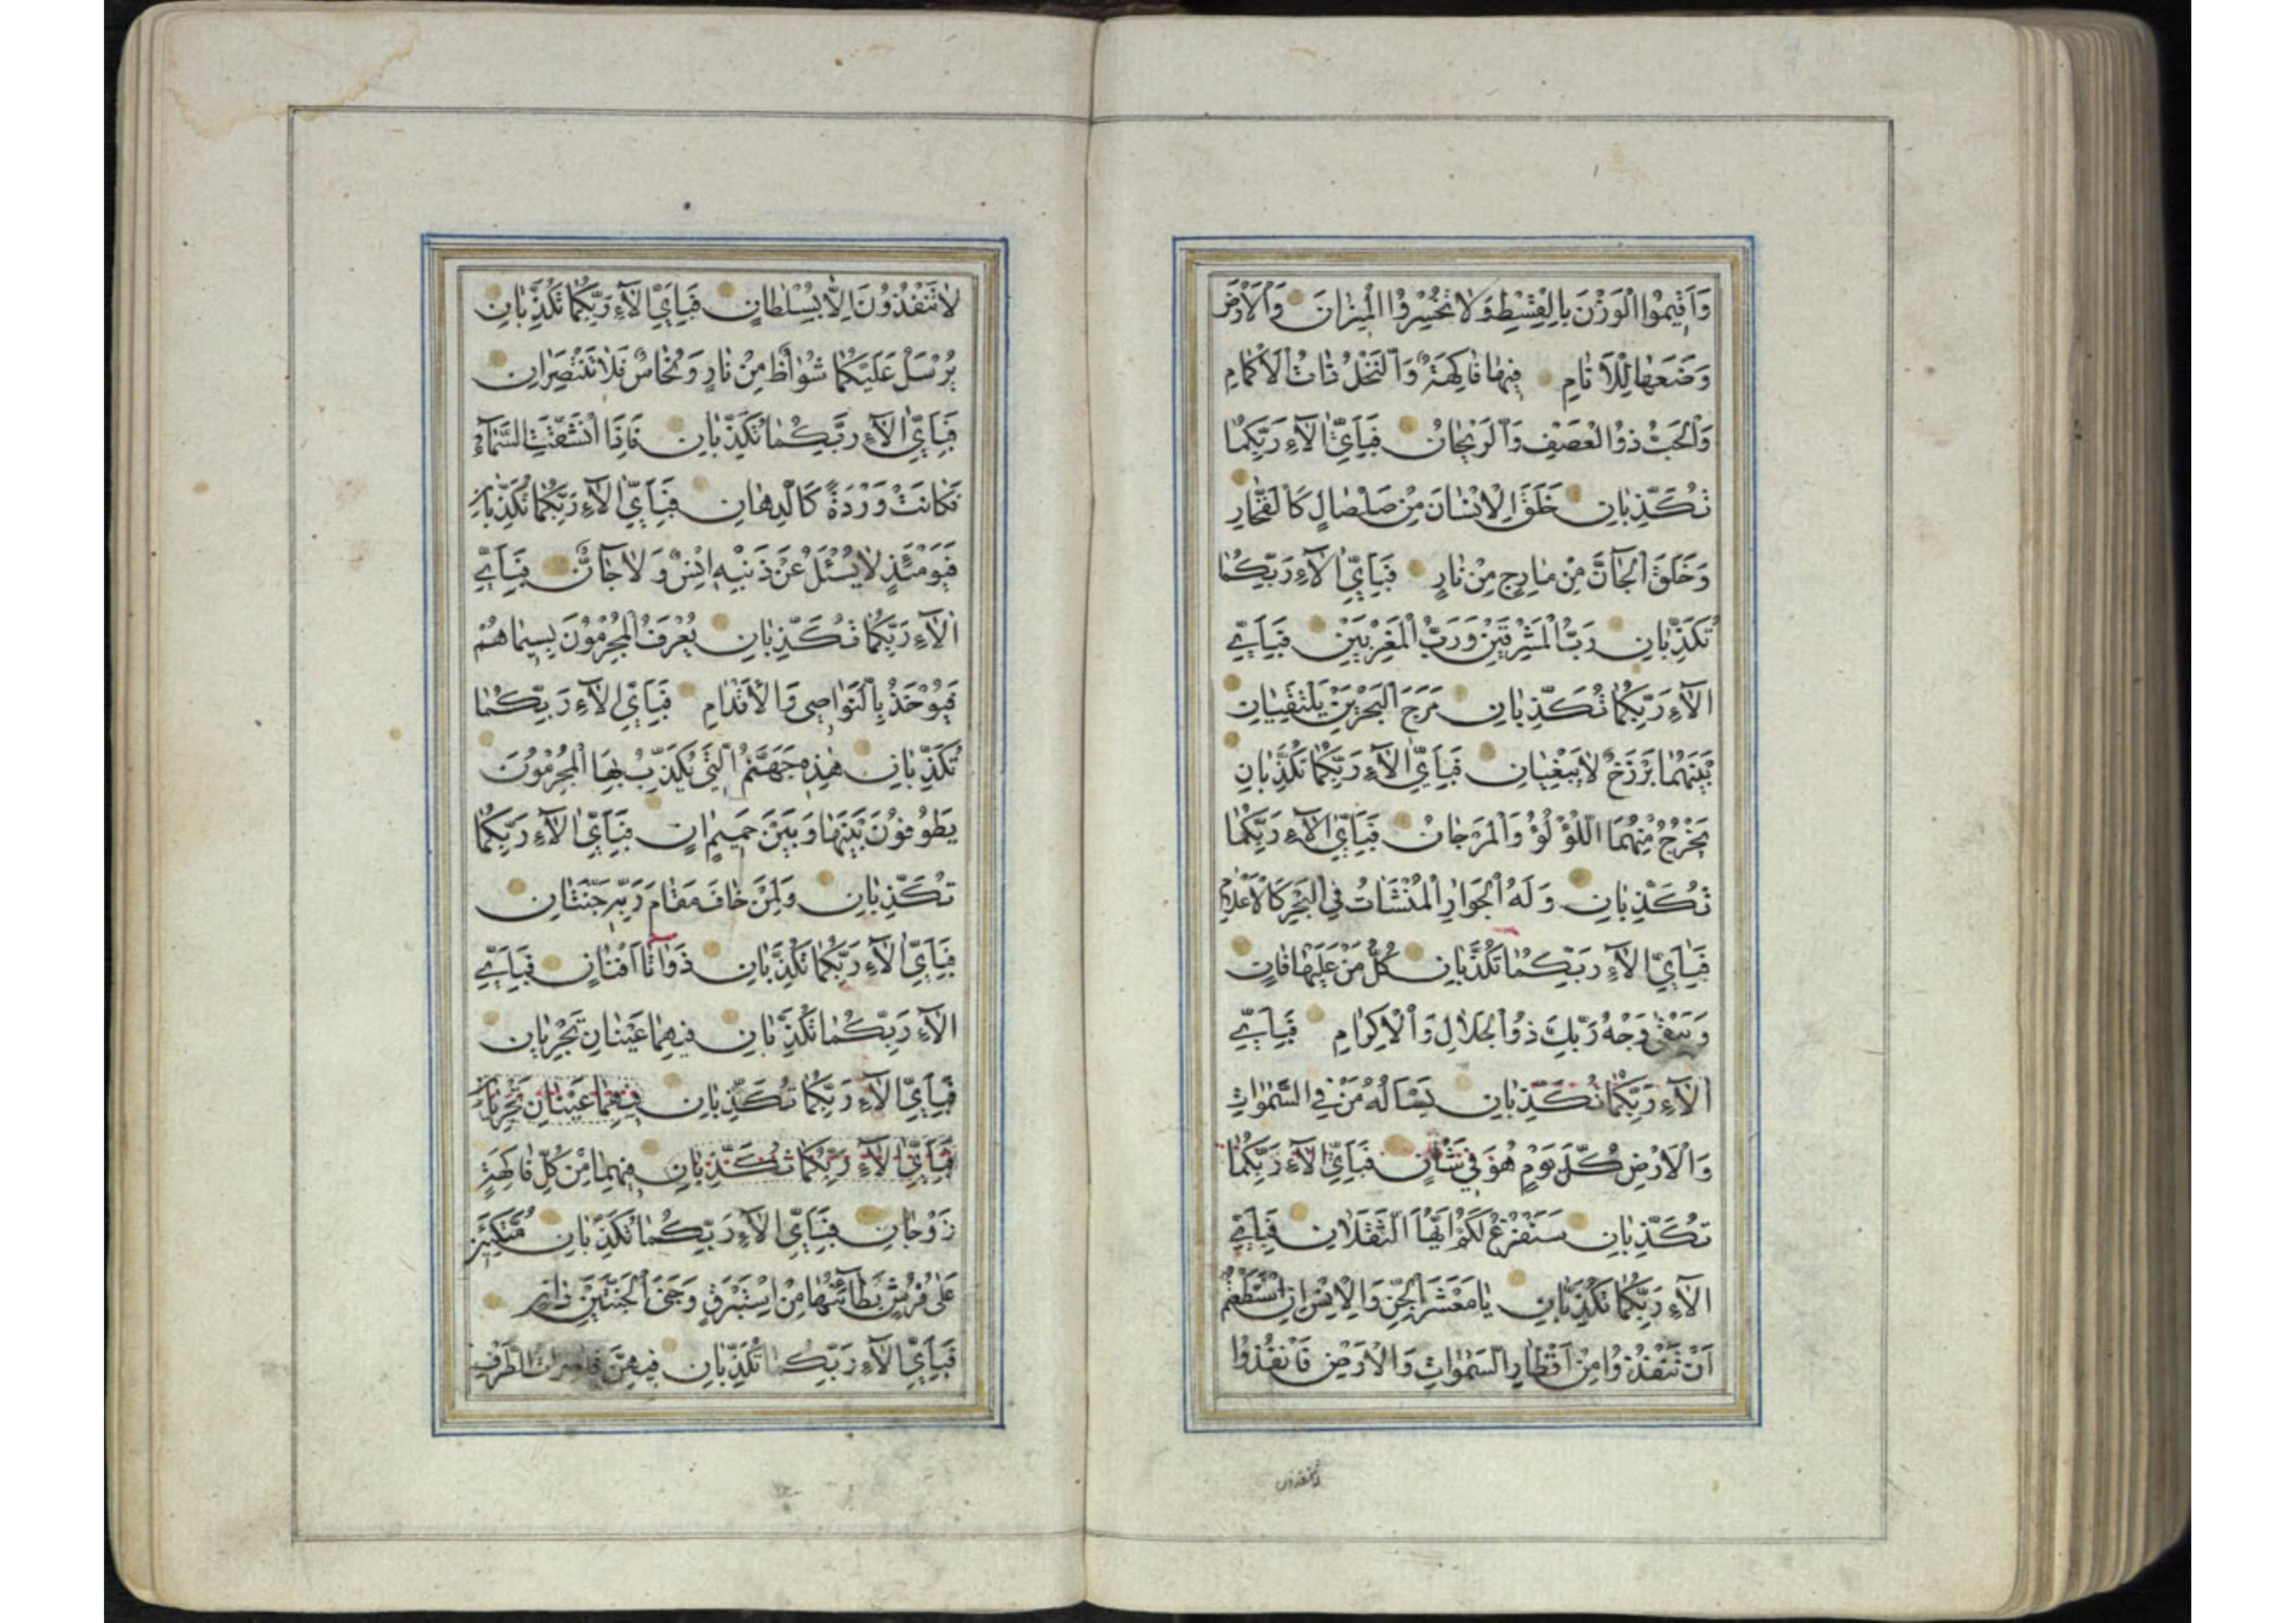 وَاَقِيمُوا الْوَزْنَ بِالْقِسْطِ وَلَا تُخْسِرُوا الْمِيزَانَ وَالْاَرْضَ
وَضَعَهَا لِلْاَنَامِ فِيهَا فَاكِهَةٌ وَالنَّخْلُ ذَاتُ الْاَكْمَامِ
وَالْحَبُّ ذُو الْعَصْفِ وَالرَّيْحَانُ فَبِاَيِّ اٰلَآءِ رَبِّكُمَا
تُكَذِّبَانِ خَلَقَ الْاِنْسَانَ مِنْ صَلْصَالٍ كَالْفَخَّارِ
وَخَلَقَ الْجَآنَّ مِنْ مَارِجٍ مِنْ نَارٍ فَبِاَيِّ اٰلَآءِ رَبِّكُمَا
تُكَذِّبَانِ رَبُّ الْمَشْرِقَيْنِ وَرَبُّ الْمَغْرِبَيْنِ فَبِاَيِّ
اٰلَآءِ رَبِّكُمَا تُكَذِّبَانِ مَرَجَ الْبَحْرَيْنِ يَلْتَقِيَانِ
بَيْنَهُمَا بَرْزَخٌ لَا يَبْغِيَانِ فَبِاَيِّ اٰلَآءِ رَبِّكُمَا تُكَذِّبَانِ
يَخْرُجُ مِنْهُمَا اللُّؤْلُؤُ وَالْمَرْجَانُ فَبِاَيِّ اٰلَآءِ رَبِّكُمَا
تُكَذِّبَانِ وَلَهُ الْجَوَارِ الْمُنْشَاٰتُ فِي الْبَحْرِ كَالْاَعْلَامِ
فَبِاَيِّ اٰلَآءِ رَبِّكُمَا تُكَذِّبَانِ كُلُّ مَنْ عَلَيْهَا فَانٍ
وَيَبْقٰى وَجْهُ رَبِّكَ ذُو الْجَلَالِ وَالْاِكْرَامِ فَبِاَيِّ
اٰلَآءِ رَبِّكُمَا تُكَذِّبَانِ يَسْاَلُهُ مَنْ فِي السَّمٰوَاتِ
وَالْاَرْضِ كُلَّ يَوْمٍ هُوَ فِي شَاْنٍ فَبِاَيِّ اٰلَآءِ رَبِّكُمَا
تُكَذِّبَانِ سَنَفْرُغُ لَكُمْ اَيُّهَا الثَّقَلَانِ فَبِاَيِّ
اٰلَآءِ رَبِّكُمَا تُكَذِّبَانِ يَا مَعْشَرَ الْجِنِّ وَالْاِنْسِ اِنِ اسْتَطَعْتُمْ
اَنْ تَنْفُذُوا مِنْ اَقْطَارِ السَّمٰوَاتِ وَالْاَرْضِ فَانْفُذُوا
لا تنفذون
لَا تَنْفُذُونَ اِلَّا بِسُلْطَانٍ فَبِاَيِّ اٰلَآءِ رَبِّكُمَا تُكَذِّبَانِ
يُرْسَلُ عَلَيْكُمَا شُوَاظٌ مِنْ نَارٍ وَنُحَاسٌ فَلَا تَنْتَصِرَانِ
فَبِاَيِّ اٰلَآءِ رَبِّكُمَا تُكَذِّبَانِ فَاِذَا انْشَقَّتِ السَّمَآءُ
فَكَانَتْ وَرْدَةً كَالدِّهَانِ فَبِاَيِّ اٰلَآءِ رَبِّكُمَا تُكَذِّبَانِ
فَيَوْمَئِذٍ لَا يُسْئَلُ عَنْ ذَنْبِهٖ اِنْسٌ وَلَا جَآنٌّ فَبِاَيِّ
اٰلَآءِ رَبِّكُمَا تُكَذِّبَانِ يُعْرَفُ الْمُجْرِمُونَ بِسِيمَاهُمْ
فَيُؤْخَذُ بِالنَّوَاصِي وَالْاَقْدَامِ فَبِاَيِّ اٰلَآءِ رَبِّكُمَا
تُكَذِّبَانِ هٰذِهٖ جَهَنَّمُ الَّتِي يُكَذِّبُ بِهَا الْمُجْرِمُونَ
يَطُوفُونَ بَيْنَهَا وَبَيْنَ حَمِيمٍ اٰنٍ فَبِاَيِّ اٰلَآءِ رَبِّكُمَا
تُكَذِّبَانِ وَلِمَنْ خَافَ مَقَامَ رَبِّهٖ جَنَّتَانِ
فَبِاَيِّ اٰلَآءِ رَبِّكُمَا تُكَذِّبَانِ ذَوَاتَا اَفْنَانٍ فَبِاَيِّ
اٰلَآءِ رَبِّكُمَا تُكَذِّبَانِ فِيهِمَا عَيْنَانِ تَجْرِيَانِ
فَبِاَيِّ اٰلَآءِ رَبِّكُمَا تُكَذِّبَانِ فِيهِمَا عَيْنَانِ تَجْرِيَانِ
فَبِاَيِّ اٰلَآءِ رَبِّكُمَا تُكَذِّبَانِ فِيهِمَا مِنْ كُلِّ فَاكِهَةٍ
زَوْجَانِ فَبِاَيِّ اٰلَآءِ رَبِّكُمَا تُكَذِّبَانِ مُتَّكِئِينَ
عَلٰى فُرُشٍ بَطَآئِنُهَا مِنْ اِسْتَبْرَقٍ وَجَنَى الْجَنَّتَيْنِ دَانٍ
فَبِاَيِّ اٰلَآءِ رَبِّكُمَا تُكَذِّبَانِ فِيهِنَّ قَاصِرَاتُ الطَّرْفِ